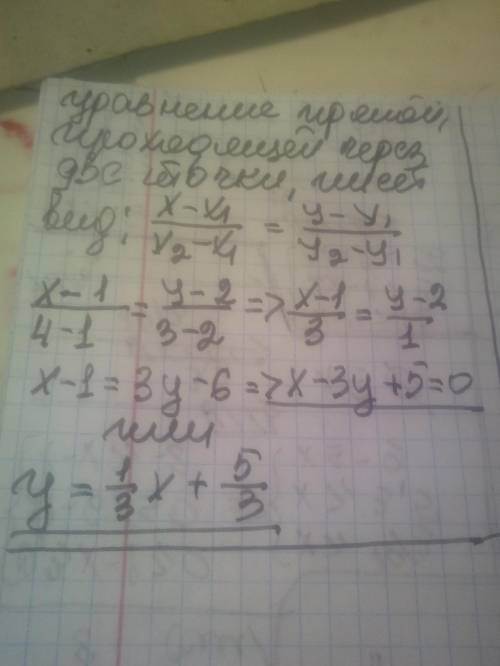 уравнение прямой,
проходящей через
две точки, имеет
вид: (x-x₁)/(x₂-x₁) = (y-y₁)/(y₂-y₁)
(x-1)/(4-1) = (y-2)/(3-2) => (x-1)/3 = (y-2)/1
x-1 = 3y-6 => x-3y+5=0
или
y = 1/3 x + 5/3